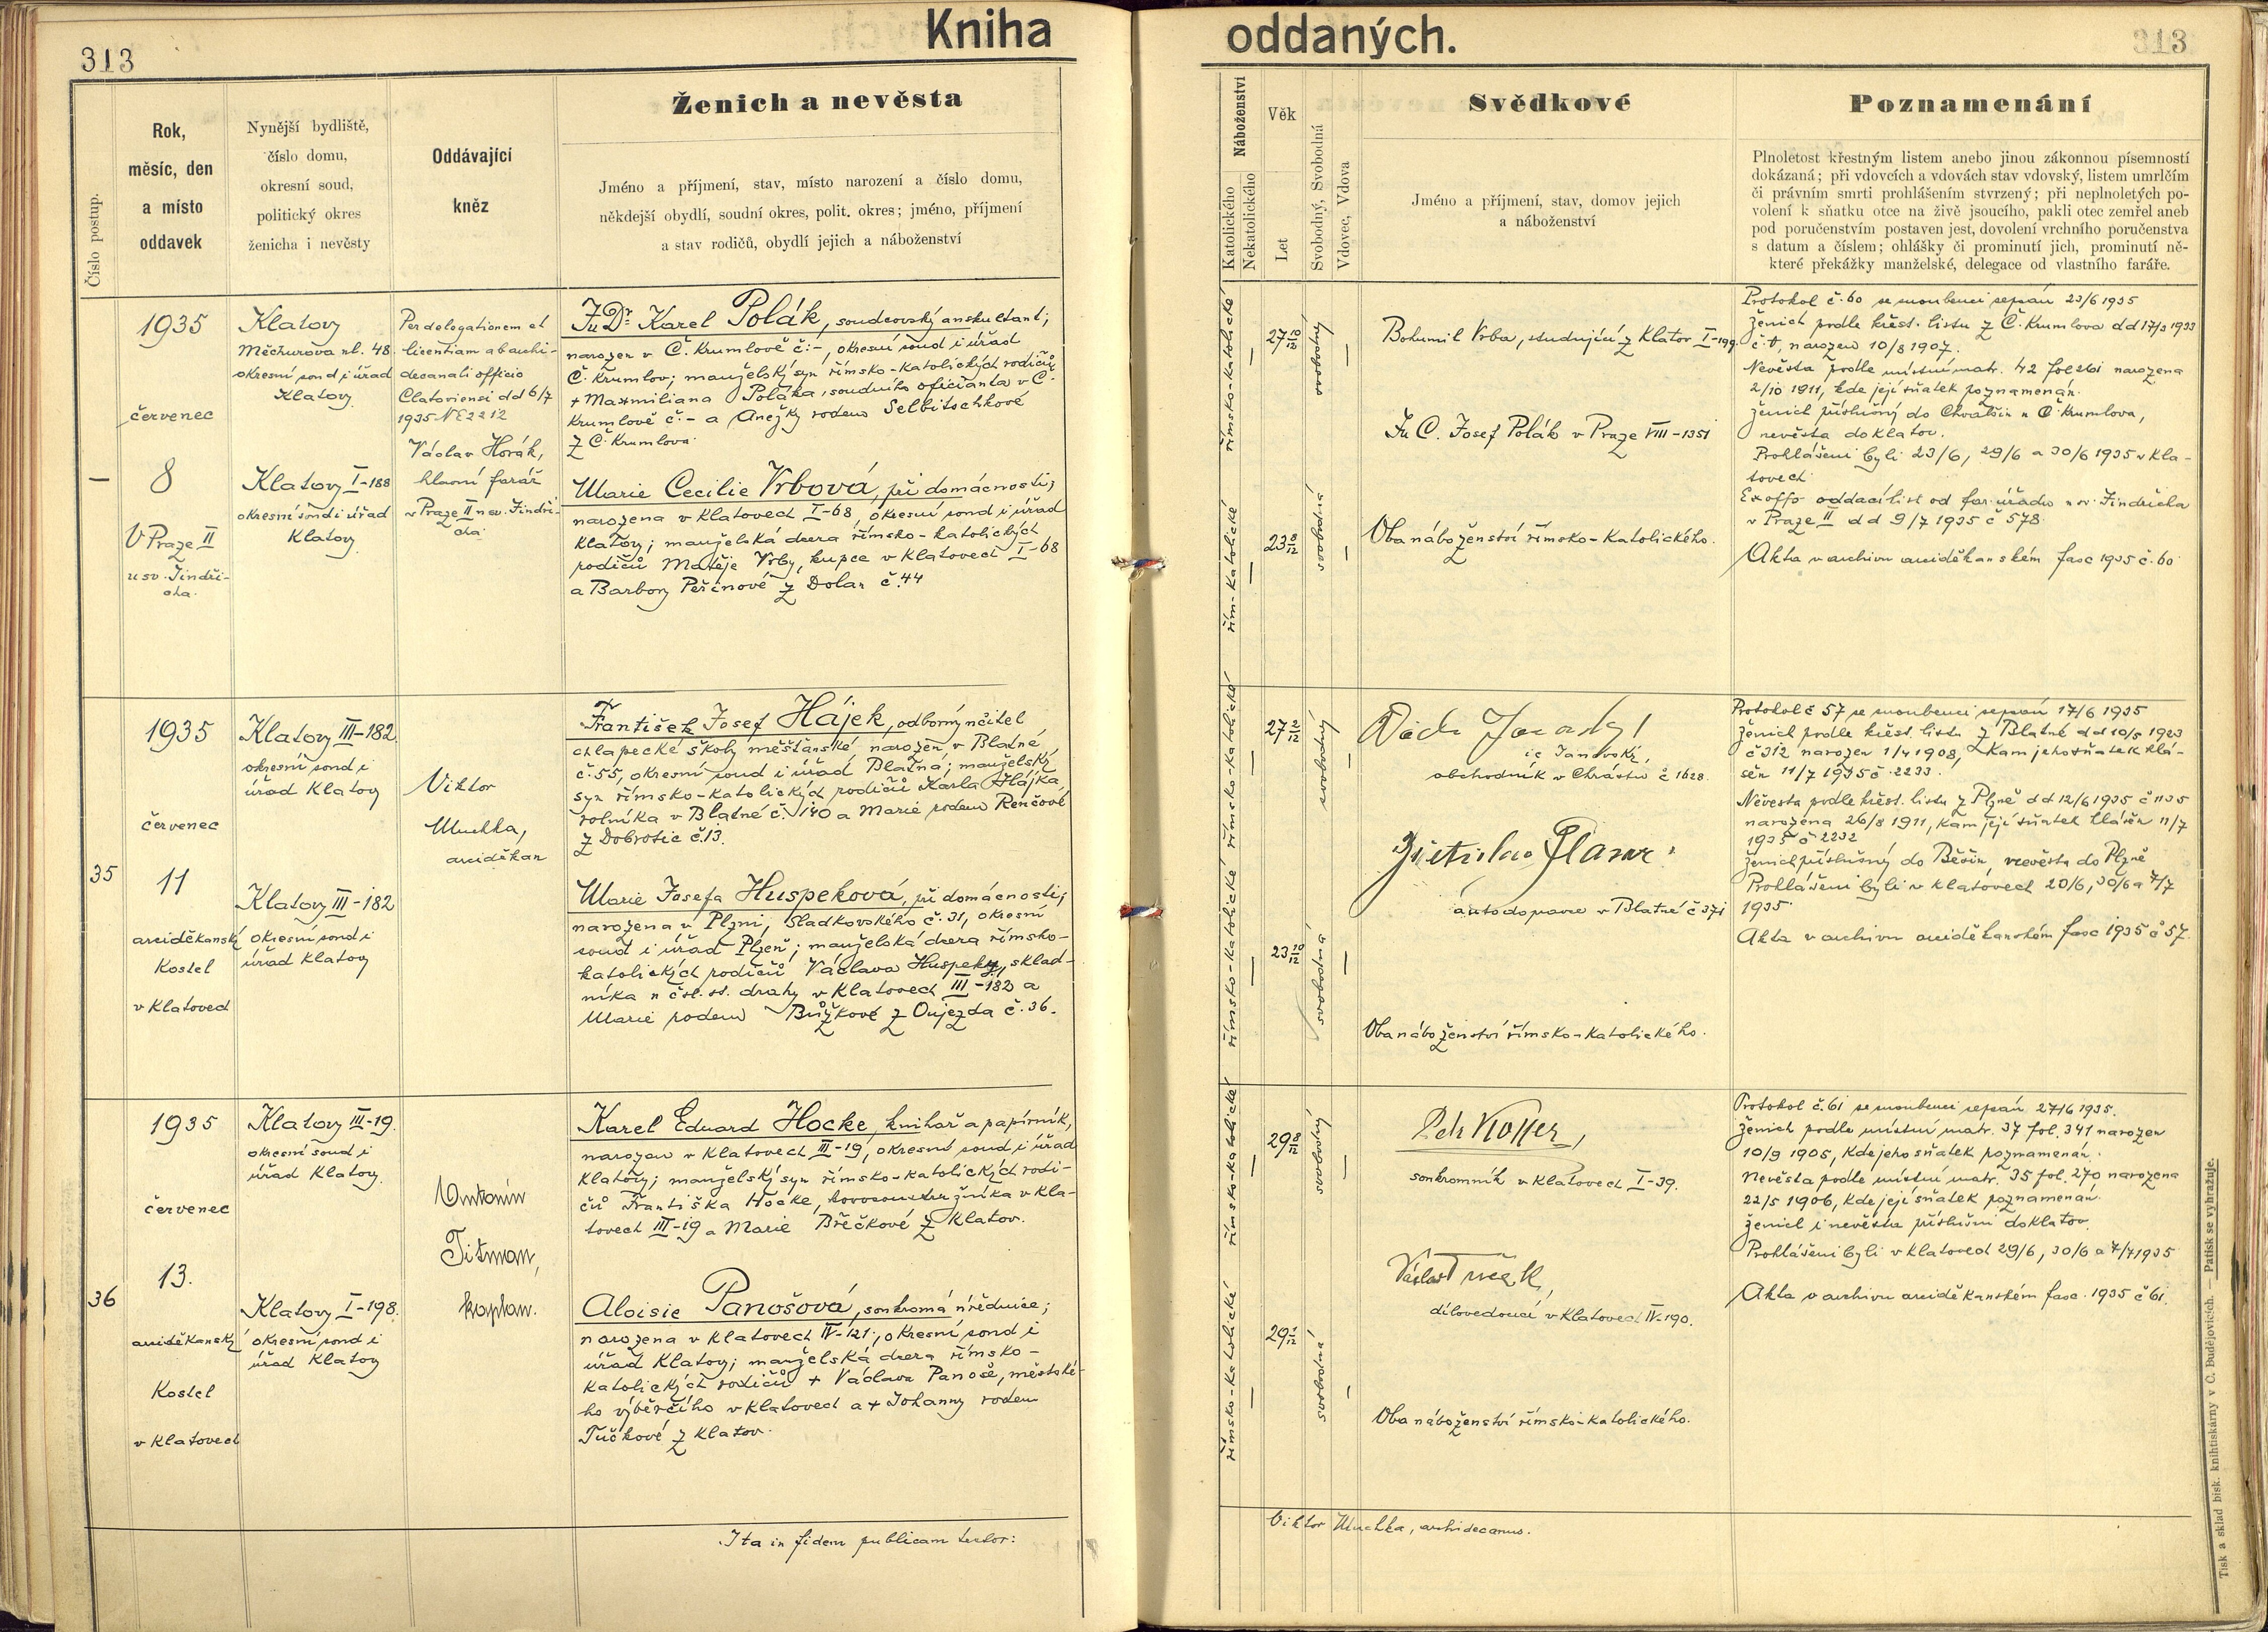 313
Kniha
oddaných.
313
Číslo postup.
Rok,
měsíc, den
a místo
oddavek
Nynější bydliště,
číslo domu,
okresní soud,
politický okres
ženicha i nevěsty
Oddávající
kněz
Ženich a nevěsta
Jméno a příjmení, stav, místo narození a číslo domu,
někdejší obydlí, soudní okres, polit. okres; jméno, příjmení
a stav rodičů, obydlí jejich a náboženství
Náboženství
Katolického
Nekatolického
Věk
Let
Svobodný, Svobodná
Vdovec, Vdova
Svědkové
Jméno a příjmení, stav, domov jejich
a náboženství
Poznamenání
Plnoletost křestným listem anebo jinou zákonnou písemností
dokázaná; při vdovcích a vdovách stav vdovský, listem umrlčím
či právním smrti prohlášením stvrzený; při neplnoletých po-
volení k sňatku otce na živě jsoucího, pakli otec zemřel aneb
pod poručenstvím postaven jest, dovolení vrchního poručenstva
s datum a číslem; ohlášky či prominutí jich, prominutí ně-
které překážky manželské, delegace od vlastního faráře.
—
1935
červenec
8
V Praze II
u sv. Jindři-
cha.
Klatovy
Měchurova ul. 48
okresní soud i úřad
Klatovy
Klatovy I-188
okresní soud i úřad
Klatovy
Per delegationem et
licentiam ab archi-
decanali officio
Clatoviensi dd 6/7
1935 NE 2212
Václav Horák,
hlavní farář
v Praze II u sv. Jindři-
cha
JuDr Karel Polák, soudcovský auskultant;
narozen v Č. Krumlově č:-, okresní soud i úřad
Č. Krumlov; manželský syn římsko-katolických rodičů
+ Maxmiliana Poláka, soudního oficianta v Č.
Krumlově č:- a Anežky rodem Selbitschkové
z Č. Krumlova.
Marie Cecilie Vrbová, při domácnosti;
narozena v Klatovech I-68, okresní soud i úřad
Klatovy; manželská dcera římsko-katolických
rodičů Matěje Vrby, kupce v Klatovech I-68
a Barbory Peřinové z Dolan č. 44
římsko-katolické
řím-katolické
27 10/12
23 8/12
svobodný
svobodná
Bohumil Vrba, studující z Klatov I-199
Ju C. Josef Polák v Praze VIII-1351
Oba náboženství římsko-katolického.
Protokol č. 60 se snoubenci sepsán 23/6 1935
Ženich podle křest. listu z Č. Krumlova dd 17/3 1933
narozen 10/8 1907.
Nevěsta podle místní matr. 42 fol 261 narozena
2/10 1911, kde její sňatek poznamenán.
Ženich příslušný do Chvalšin u Č. Krumlova,
nevěsta do Klatov.
Prohlášeni byli 23/6, 29/6 a 30/6 1935 v Kla-
tovech
Ex offo oddací list od far. úřadu u sv. Jindřicha
v Praze II dd 9/7 1935 č 578.
Akta v archivu arciděkanském fasc 1935 č. 60
35
1935
červenec
11
arciděkanský
kostel
v Klatovech
Klatovy III-182.
okresní soud i
úřad Klatovy
Klatovy III-182
okresní soud i
úřad Klatovy
Viktor
Muchka,
arciděkan
František Josef Hájek, odborný učitel
chlapecké školy měšťanské narozen v Blatné
č. 55, okresní soud i úřad Blatná; manželský
syn římsko-katolických rodičů Karla Hájka,
rolníka v Blatné č. 140 a Marie rodem Renčové
z Dobrotic č. 13.
Marie Josefa Huspeková, při domácnosti;
narozena v Plzni, Sladkovského č. 31, okresní
soud i úřad Plzeň; manželská dcera římsko-
katolických rodičů Václava Huspeky, sklad-
níka u čsl. st. dráhy v Klatovech III-182 a
Marie rodem Bůžkové z Oujezda č. 36.
římsko-katolické
římsko-katolické
27 2/12
23 10/12
svobodný
svobodná
ie Janovský,
obchodník v Chrástu č 1628.
autodopravce v Blatné č 371
Oba náboženství římsko-katolického.
Protokol č 57 se snoubenci sepsán 17/6 1935
Ženich podle křest. listu z Blatné dd 10/5 1923
č 312 narozen 1/4 1908, kam jeho sňatek hlá-
šen 11/7 1935 č. 2233.
Nevěsta podle křest. listu z Plzně dd 12/6 1935 č 1135
narozena 26/8 1911, kam její sňatek hlášen 11/7
1935 č 2232
Ženich příslušný do Běšin, nevěsta do Plzně
Prohlášeni byli v Klatovech 20/6, 30/6 a 7/7
1935.
Akta v archivu arciděkanském fasc 1935 č 57.
36
1935
červenec
13.
arciděkanský
kostel
v Klatovech
Klatovy III-19.
okresní soud i
úřad Klatovy.
Klatovy I-198.
okresní soud i
úřad Klatovy
Antonín
Titman,
kaplan.
Karel Eduard Hocke, knihař a papírník,
narozen v Klatovech III-19, okresní soud i úřad
Klatovy; manželský syn římsko-katolických rodi-
čů Františka Hocke, kovosoustružníka v Kla-
tovech III-19 a Marie Břečkové z Klatov.
Aloisie Panošová, soukromá úřednice;
narozena v Klatovech IV-121, okresní soud i
úřad Klatovy; manželská dcera římsko-
katolických rodičů + Václava Panoše, městské-
ho výběrčího v Klatovech a + Johanny rodem
Tučkové z Klatov.
římsko-katolické
římsko-katolické
29 8/12
29 1/12
svobodný
svobodná
soukromník v Klatovech I-39.
Václav
dílovedoucí v Klatovech IV-190.
Oba náboženství římsko-katolického.
Protokol č. 61 se snoubenci sepsán 27/6 1935.
Ženich podle místní matr. 37 fol. 341 narozen
10/9 1905, kde jeho sňatek poznamenán.
Nevěsta podle místní matr. 35 fol. 270 narozena
22/5 1906, kde její sňatek poznamenán.
Ženich i nevěsta příslušní do Klatov.
Prohlášeni byli v Klatovech 29/6, 30/6 a 7/7 1935
Akta v archivu arciděkanském fasc. 1935 č 61.
Ita in fidem publicam testor:
Viktor Muchka, archidecanus.
Tisk a sklad bisk. knihtiskárny v Č. Budějovicích. — Patisk se vyhražuje.